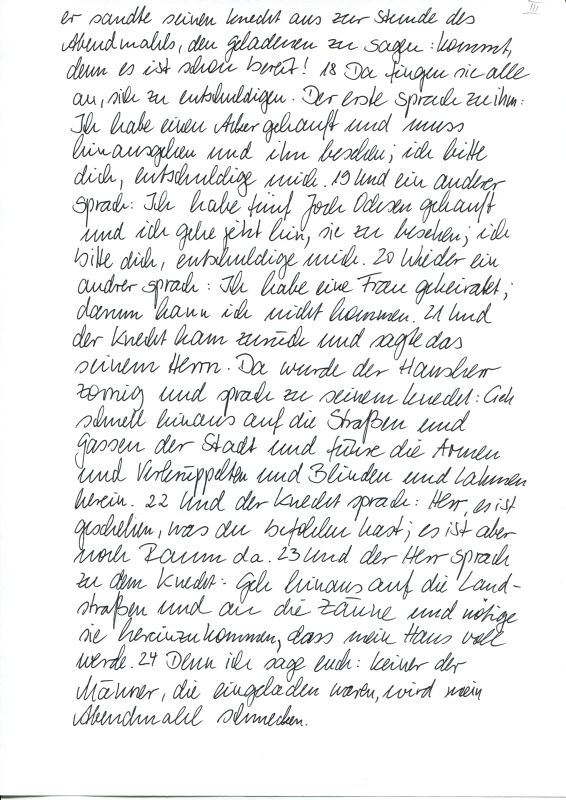 III
er sandte seinen Knecht aus zur Stunde des
Abendmahls, den geladenen zu sagen: kommt,
denn es ist schon bereit! 18 Da fingen sie alle
an, sich zu entschuldigen. Der erste sprach zu ihm:
Ich habe einen Acker gekauft und muss
hinausgehen und ihn besehen; ich bitte
dich, entschuldige mich. 19 Und ein anderer
sprach: Ich habe fünf Joch Ochsen gekauft
und ich gehe jetzt hin, sie zu besehen; ich
bitte dich, entschuldige mich. 20 Wieder ein
andrer sprach: Ich habe eine Frau geheiratet;
darum kann ich nicht kommen. 21 Und
der Knecht kam zurück und sagte das
seinem Herrn. Da wurde der Hausherr
zornig und sprach zu seinem Knecht: Geh
schnell hinaus auf die Straßen und
Gassen der Stadt und führe die Armen
und Verkrüppelten und Blinden und Lahmen
herein. 22 Und der Knecht sprach: Herr, es ist
geschehen, was du befohlen hast; es ist aber
noch Raum da. 23 Und der Herr sprach
zu dem Knecht: Geh hinaus auf die Land-
straßen und an die Zäune und nötige
sie hereinzukommen, dass mein Haus voll
werde. 24 Denn ich sage euch: keiner der
Männer, die eingeladen waren, wird mein
Abendmahl schmecken.